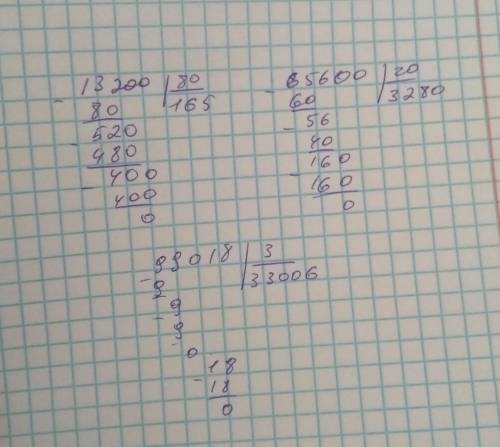 13200 | 80
- 80 | 165
520
- 480
400
- 400
0
65600 | 20
- 60 | 3280
56
- 40
160
- 160
0
99018 | 3
- 9 | 33006
9
- 9
0
18
- 18
0